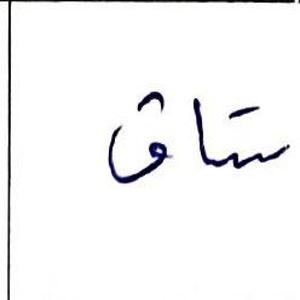 ستاق